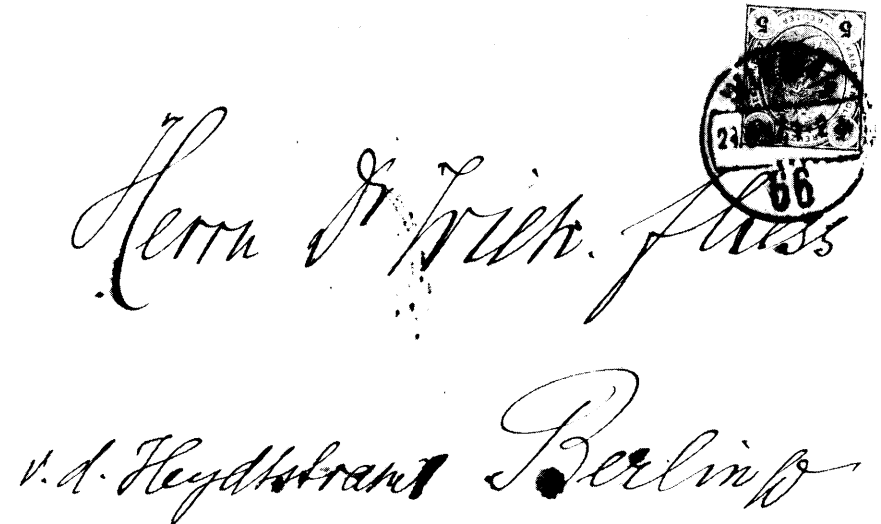 5 KREUZER 5
66
Herrn Dr Wilh. Fliess
v. d. Heydtstrasse 1 Berlin W